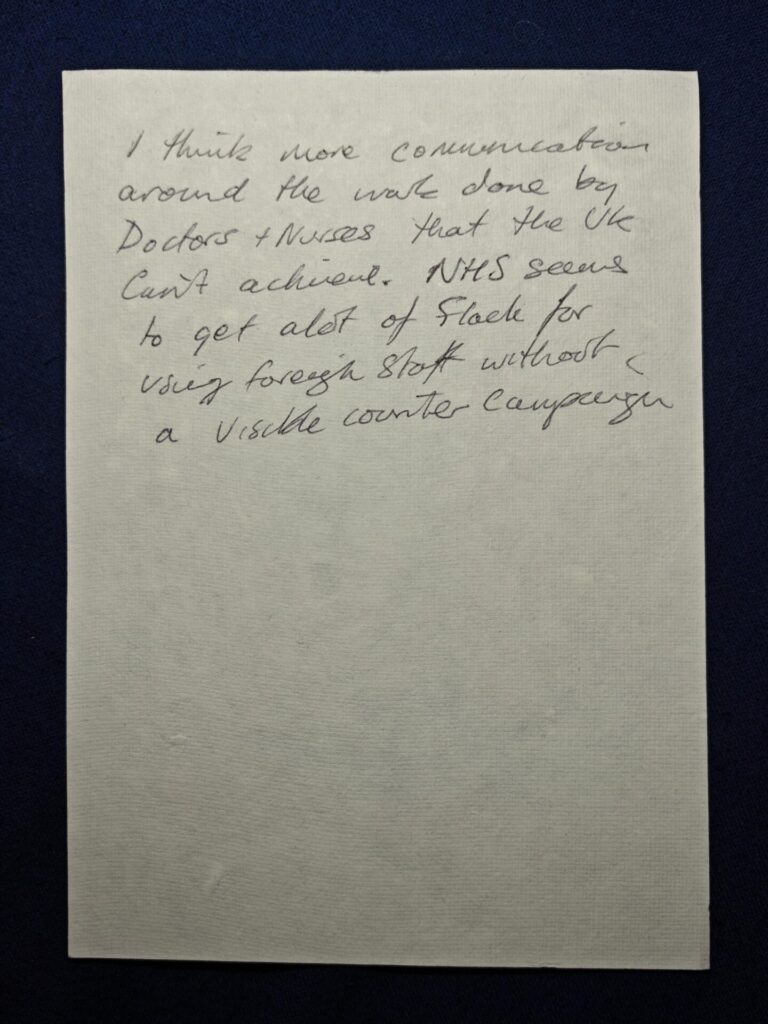 I think more communication
around the work done by
Doctors + Nurses that the UK
Can't achieve. NHS seems
to get alot of Flack for
using foreign staff without
a visible counter campaign